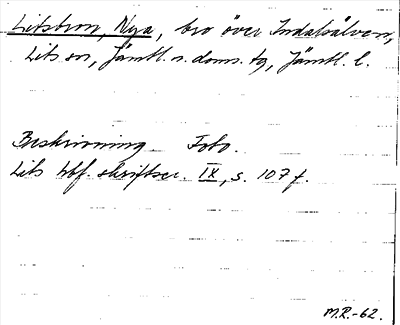 Litsbron, Nya, bro över Indalsälven,
Lits sn, Jämtl. n. doms. tg, Jämtl. l.
Beskrivning Foto.
Lits hbf. skriftser. IX, s. 107 f.
M.R.-62.